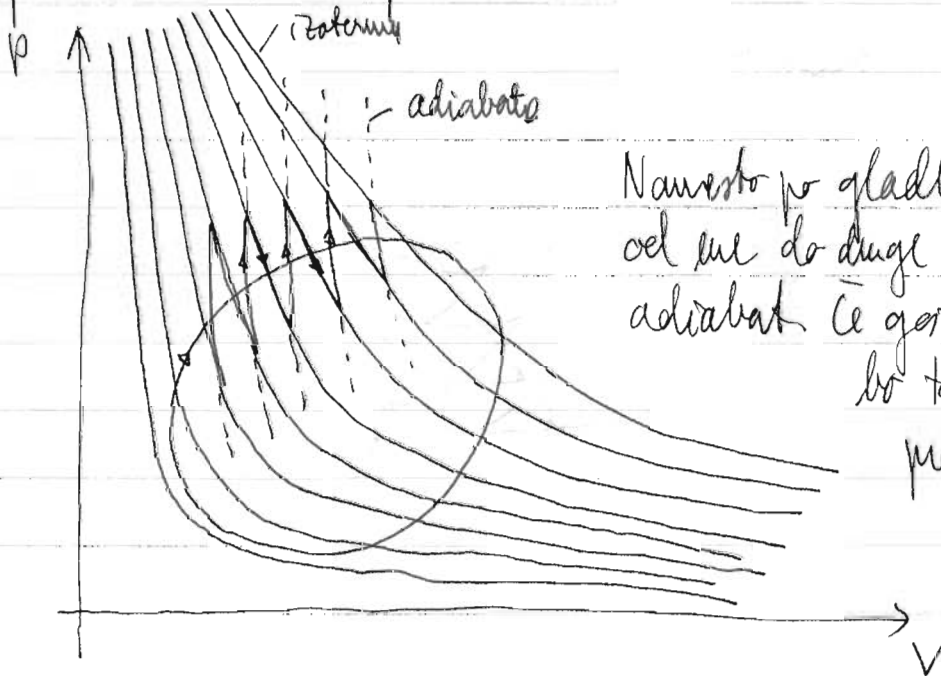 p
izoterma
adiabata
Namesto po gladk
od ene do druge
adiabat če gos
bo t
V